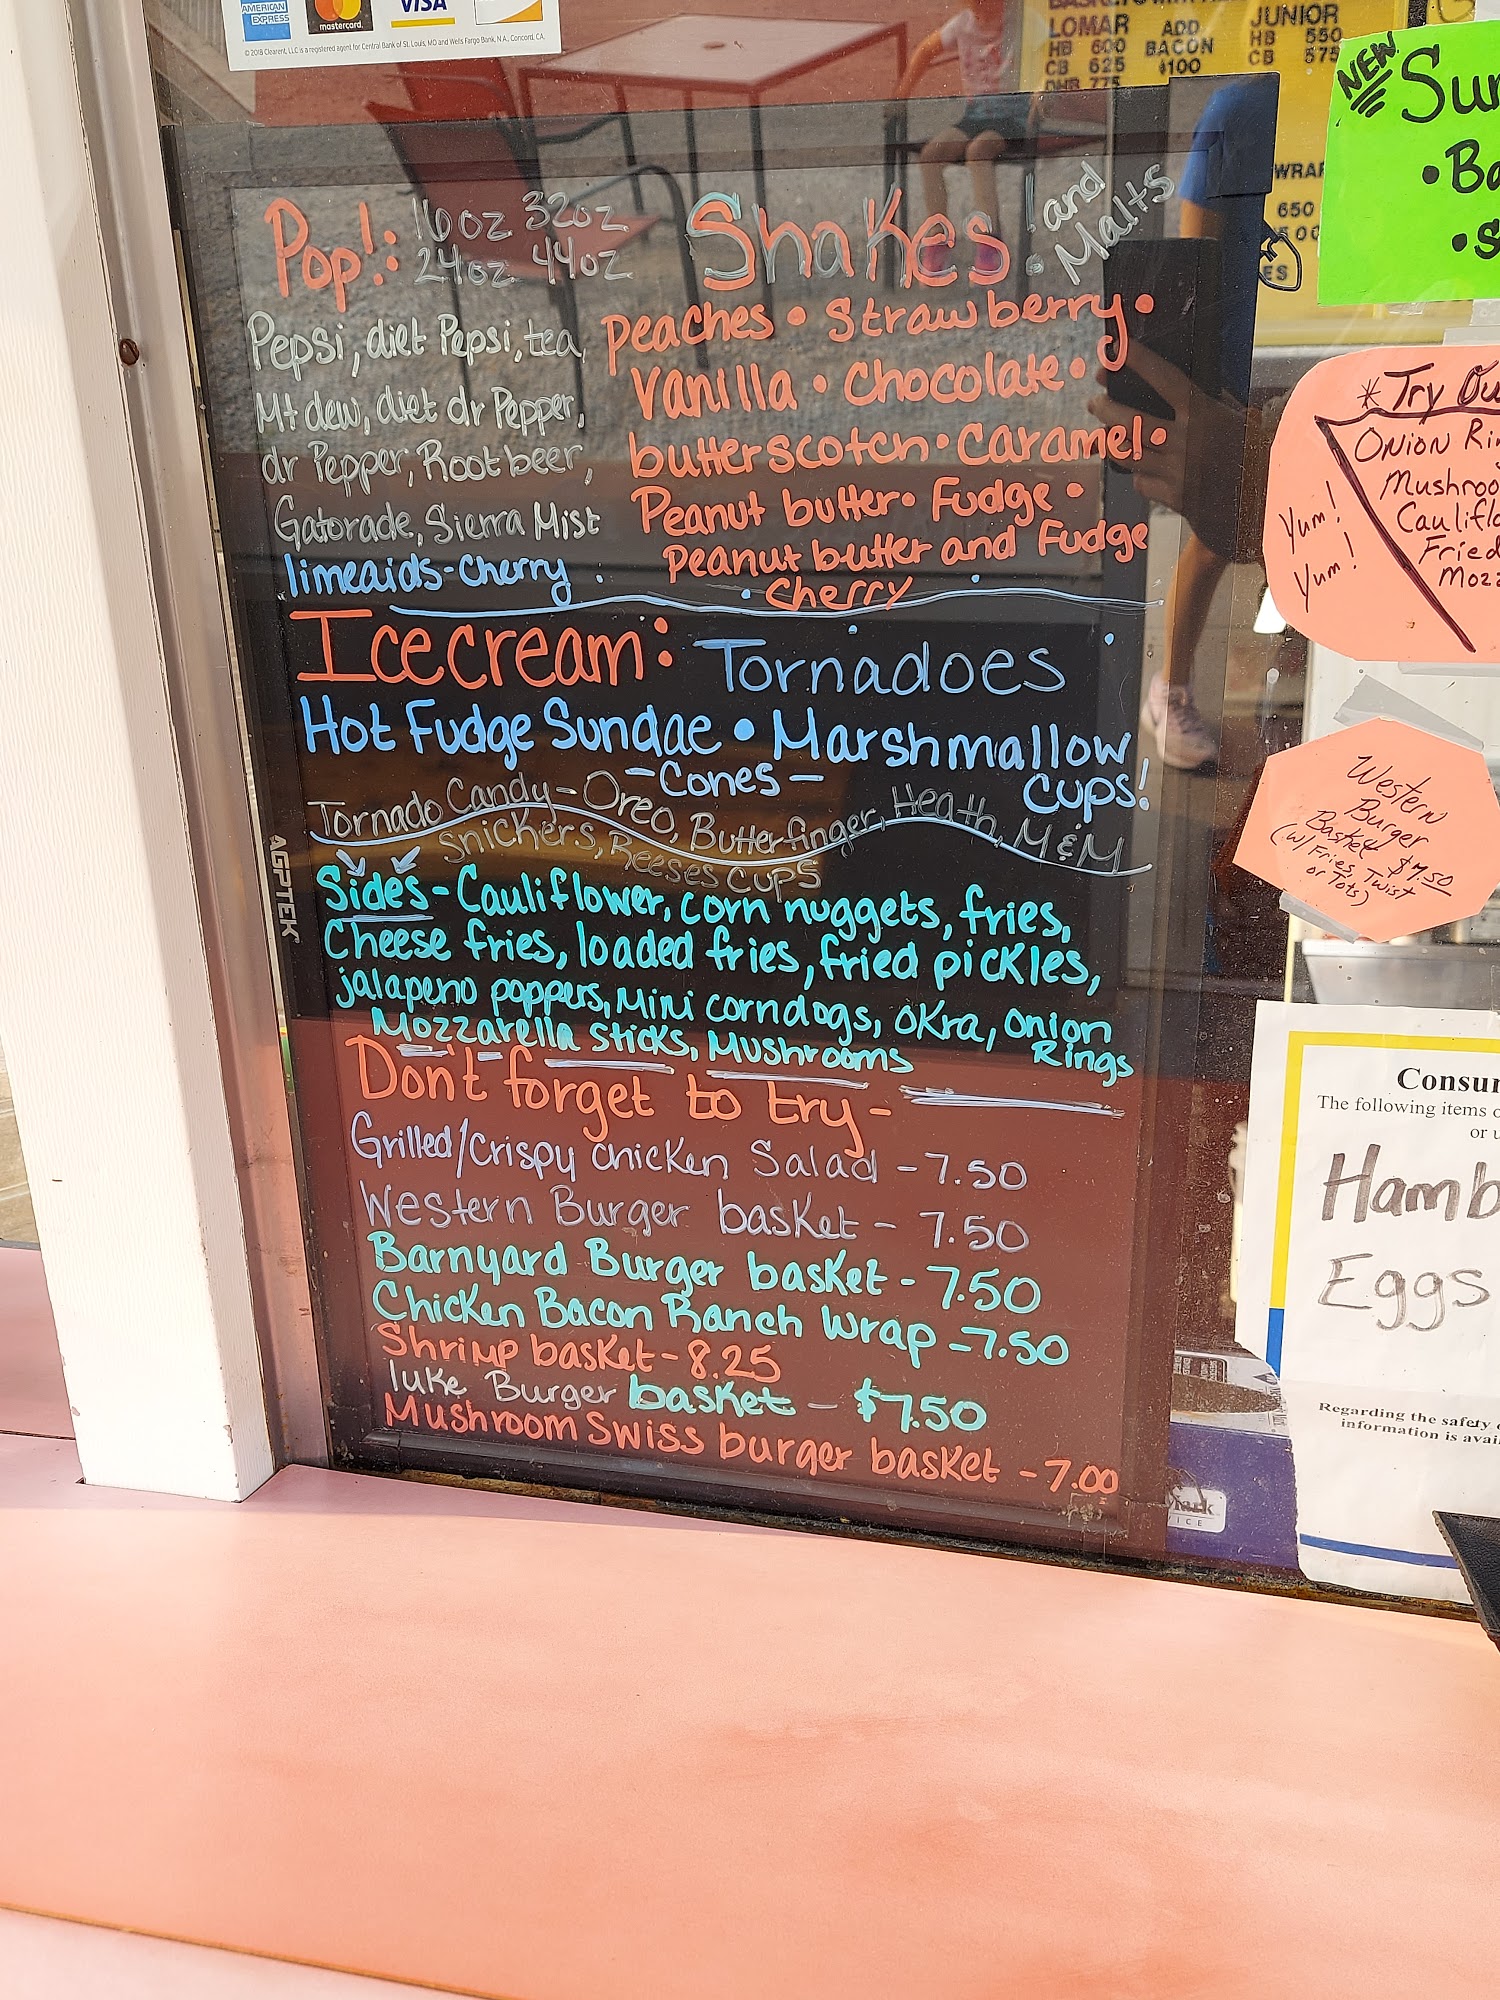 AMERICAN
EXPRESS
mastercard.
VISA
© 2018 Clearent, LLC is a registered agent for Central Bank of St. Louis, MO and Wells Fargo Bank, N.A., Concord, CA.
LOMAR
HB 600
CB 625
DHB 775
ADD
BACON
$100
JUNIOR
HB 550
CB 575
WRAP
650
NEW
Pop!: 16oz 32oz
24oz 44oz
Pepsi, diet Pepsi, tea,
Mt dew, diet dr Pepper,
dr Pepper, Rootbeer,
Gatorade, Sierra Mist
limeaids-Cherry
Shakes! and
Malts
peaches • Strawberry •
Vanilla • Chocolate •
butterscotch • Caramel •
Peanut butter • Fudge •
Peanut butter and Fudge
• Cherry
Icecream: Tornadoes
Hot Fudge Sundae • Marshmallow
cups!
- Cones -
Tornado Candy - Oreo, Butterfinger, Heath, M&M
Snickers, Reeses cups
Sides - Cauliflower, corn nuggets, fries,
Cheese fries, loaded fries, fried pickles,
jalapeno poppers, Mini corndogs, okra, onion
Rings
Mozzarella sticks, Mushrooms
Don't forget to try -
Grilled/Crispy chicken Salad - 7.50
Western Burger basket - 7.50
Barnyard Burger basket - 7.50
Chicken Bacon Ranch Wrap - 7.50
Shrimp basket - 8.25
luke Burger basket - $7.50
Mushroom Swiss burger basket - 7.00
AGPTEK
* Try Ou
Onion Ri
Mushroo
Caulifl
Fried
Mozz
Yum!
Yum!
Western
Burger
Basket $7.50
(w/ Fries, Twist
or Tots)
Consu
The following items
or u
Hamb
Eggs
Regarding the safety
information is avai